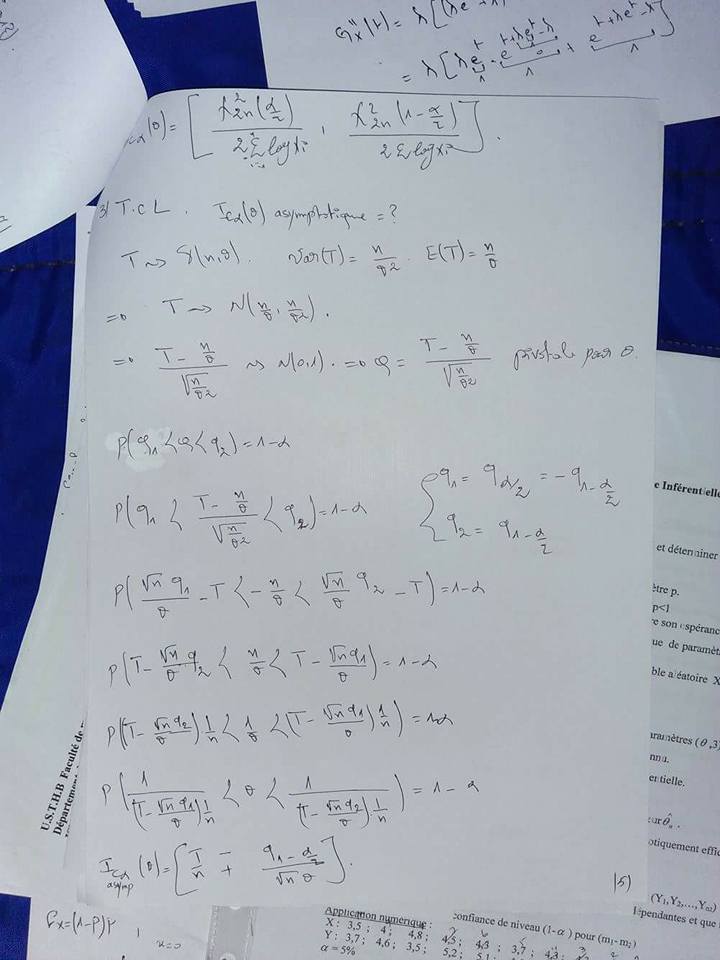 = λ[λe
I_cα(θ) = [ χ²_2n(α/2) / 2Σ log xi , χ²_2n(1-α/2) / 2Σ log xi ].
3/ T.C.L. I_cα(θ) asymptotique = ?
T ~> γ(n,θ). Var(T) = n/θ² . E(T) = n/θ
=> T ~> N(n/θ, n/θ²).
=> (T - n/θ) / √(n/θ²) ~> N(0,1). => Q = (T - n/θ) / √(n/θ²) pivotale pour θ.
P(q1 < Q < q2) = 1-α
P(q1 < (T - n/θ) / √(n/θ²) < q2) = 1-α { q1 = q_α/2 = -q_1-α/2
q2 = q_1-α/2
P(√n q1/θ - T < -n/θ < √n/θ q2 - T) = 1-α
P(T - √n q2/θ < n/θ < T - √n q1/θ) = 1-α
P((T - √n q2/θ) 1/n < 1/θ < (T - √n q1/θ) 1/n) = 1-α
P(1 / ((T - √n q1/θ) 1/n) < θ < 1 / ((T - √n q2/θ) . 1/n)) = 1-α
I_cα asymp (θ) = [T/n ∓ q_1-α/2 / √n θ].
|5)
U.S.T.H.B Faculté de
Département
e Inférentielle
et déterminer
ètre p.
p<1
e son espéranc
ue de paramèt
ble aléatoire X
aramètres (θ,3)
nnu.
entielle.
otiquement effic
(Y1,Y2,...,Yn2)
dépendantes et que
Application numérique :
confiance de niveau (1-α) pour (m1-m2)
X : 3,5 ; 4 ; 4,8 ; 4,5 ; 4,3 ; 3,7 ; 4,3
Y : 3,7 ; 4,6 ; 3,5 ; 5,2 ;
α = 5%
x=0